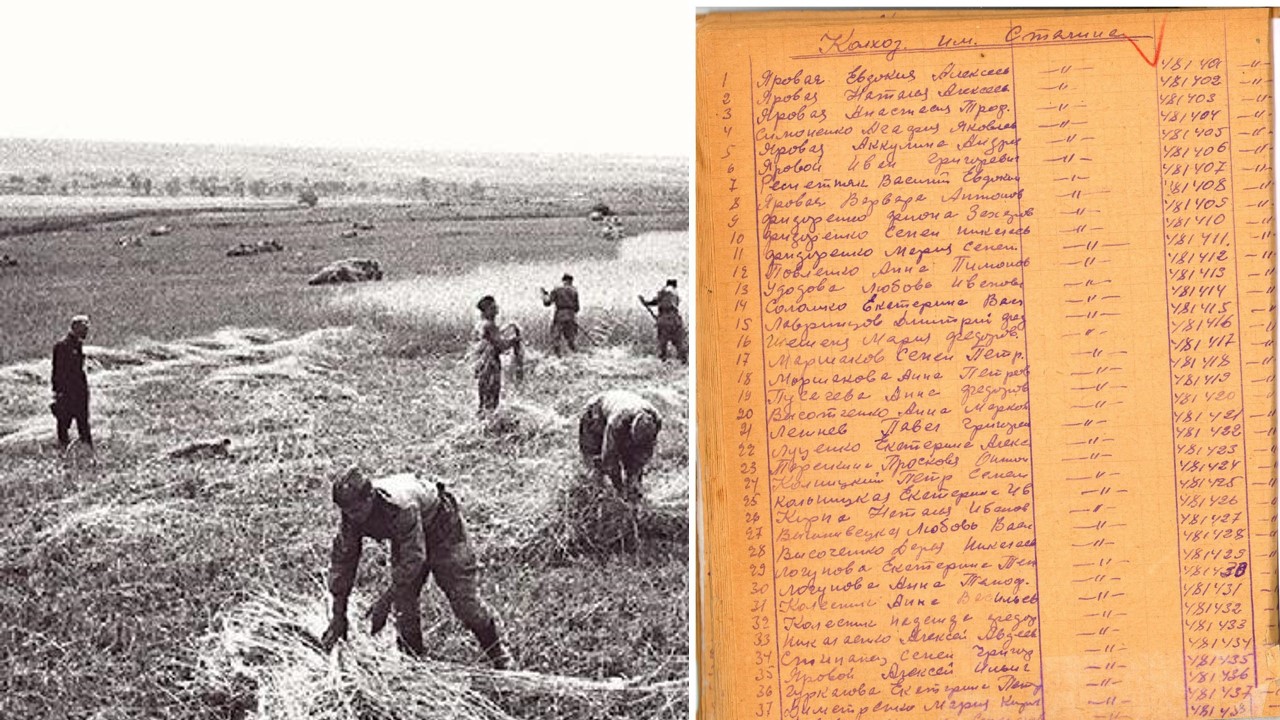 Колхоз им. Сталина
1 Яровая Евдокия Алексеев —"— 481401 —"—
2 Яровая Наталья Алексеев —"— 481402 —"—
3 Яровая Анастасия Трод. —"— 481403 —"—
4 Симоненко Агафия Яковлев —"— 481404 —"—
5 Яровая Аккулина Андре —"— 481405 —"—
6 Яровой Иван Григоревич —"— 481406 —"—
7 Решетняк Василий Евдоким —"— 481407 —"—
8 Яровая Варвара Антонов —"— 481408 —"—
9 Захаров —"— 481409 —"—
10 Семен Николаев —"— 481410 —"—
11 Мария Семен. —"— 481411 —"—
12 Павленко Анна Тимонов —"— 481412 —"—
13 Удодова Любовь Иванов —"— 481413 —"—
14 Соломко Екатерина Вас —"— 481414 —"—
15 Лавринцов Дмитрий фед —"— 481415 —"—
16 Мария федоров. —"— 481416 —"—
17 Маршаков Семен Петр. —"— 481417 —"—
18 Маршакова Анна Петров —"— 481418 —"—
19 Анна федоров —"— 481419 —"—
20 Высотченко Анна Марков —"— 481420 —"—
21 Павел Григорев —"— 481421 —"—
22 Луценко Екатерина Алекс —"— 481422 —"—
23 Просковя —"— 481423 —"—
24 Колницкий Петр Семен —"— 481424 —"—
25 Кольницкая Екатерина Ив —"— 481425 —"—
26 Наталья Иванов —"— 481426 —"—
27 Вишневецка Любовь Васи —"— 481427 —"—
28 Высоченко Дарья Николаев —"— 481428 —"—
29 Логунова Екатерина —"— 481429 —"—
30 Логунова Анна —"— 481430 —"—
31 Колесник Анна Васильев —"— 481431 —"—
32 Колесник Надежда федор —"— 481432 —"—
33 Николаенко Алексей Авдеев —"— 481433 —"—
34 Семен Григор —"— 481434 —"—
35 Яровой Алексей Ильич —"— 481435 —"—
36 Екатерина Петр —"— 481436 —"—
37 Мария —"— 481437 —"—